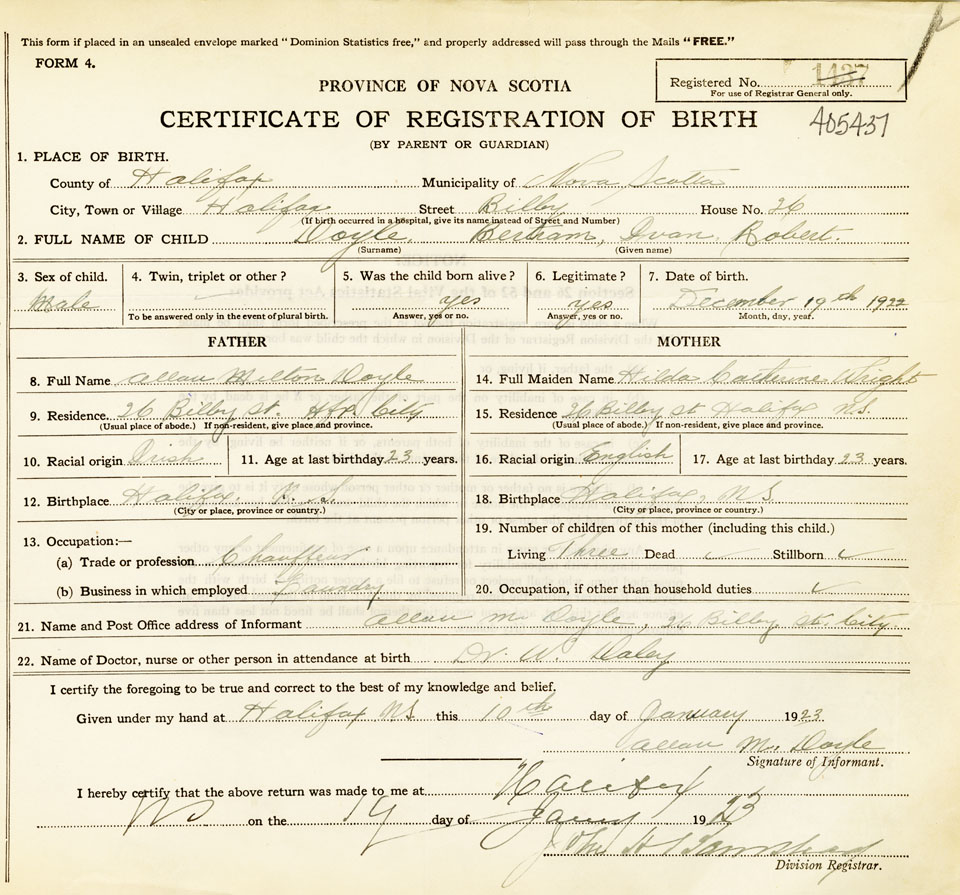 This form if placed in an unsealed envelope marked "Dominion Statistics free," and properly addressed will pass through the Mails "FREE."
FORM 4.
PROVINCE OF NOVA SCOTIA
Registered No. 1437
For use of Registrar General only.
CERTIFICATE OF REGISTRATION OF BIRTH
405437
(BY PARENT OR GUARDIAN)
1. PLACE OF BIRTH.
County of Halifax Municipality of Nova Scotia
City, Town or Village Halifax Street Bilby House No. 26
(If birth occurred in a hospital, give its name instead of Street and Number)
2. FULL NAME OF CHILD Doyle, Bertram, Ivan. Robert.
(Surname) (Given name)
3. Sex of child. 4. Twin, triplet or other? 5. Was the child born alive? 6. Legitimate? 7. Date of birth.
Male yes yes December 19th 1922
To be answered only in the event of plural birth. Answer, yes or no. Answer, yes or no. Month, day, year.
FATHER MOTHER
8. Full Name Allan Milton Doyle 14. Full Maiden Name Hilda Catherine Wright
9. Residence. 26 Bilby St. City 15. Residence 26 Bilby St Halifax N.S.
(Usual place of abode.) If non-resident, give place and province. (Usual place of abode.) If non-resident, give place and province.
10. Racial origin Irish 11. Age at last birthday 23 years. 16. Racial origin English 17. Age at last birthday 23 years.
12. Birthplace Halifax. N.S. 18. Birthplace Halifax, N.S.
(City or place, province or country.) (City or place, province or country.)
19. Number of children of this mother (including this child.)
13. Occupation:—
Living Three Dead Stillborn
(a) Trade or profession Chauffeur
(b) Business in which employed Laundry 20. Occupation, if other than household duties
21. Name and Post Office address of Informant Allan M. Doyle, 26 Bilby St. City
22. Name of Doctor, nurse or other person in attendance at birth Dr. W. Daley
I certify the foregoing to be true and correct to the best of my knowledge and belief.
Given under my hand at Halifax N.S. this 10th day of January 1923
Allan M. Doyle
Signature of Informant.
I hereby certify that the above return was made to me at Halifax
NS on the day of 1923
John H
Division Registrar.